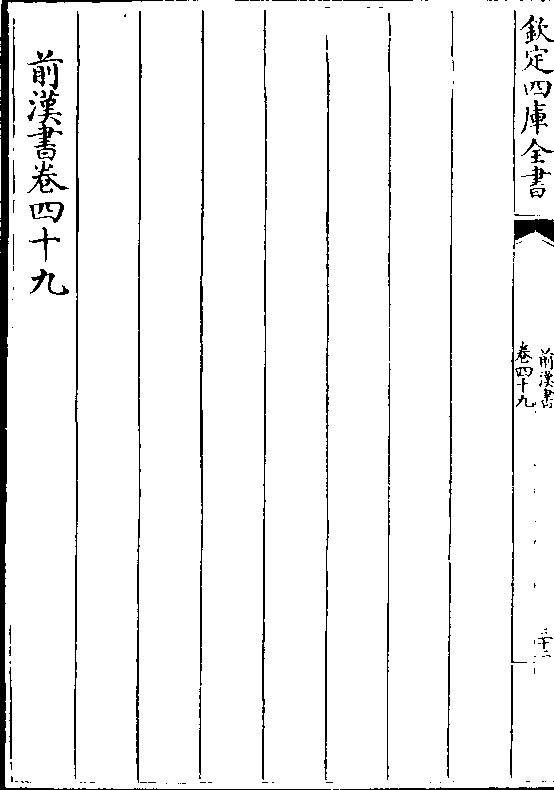 欽定四庫全書
前漢書
卷四十九
三十二
前漢書卷四十九